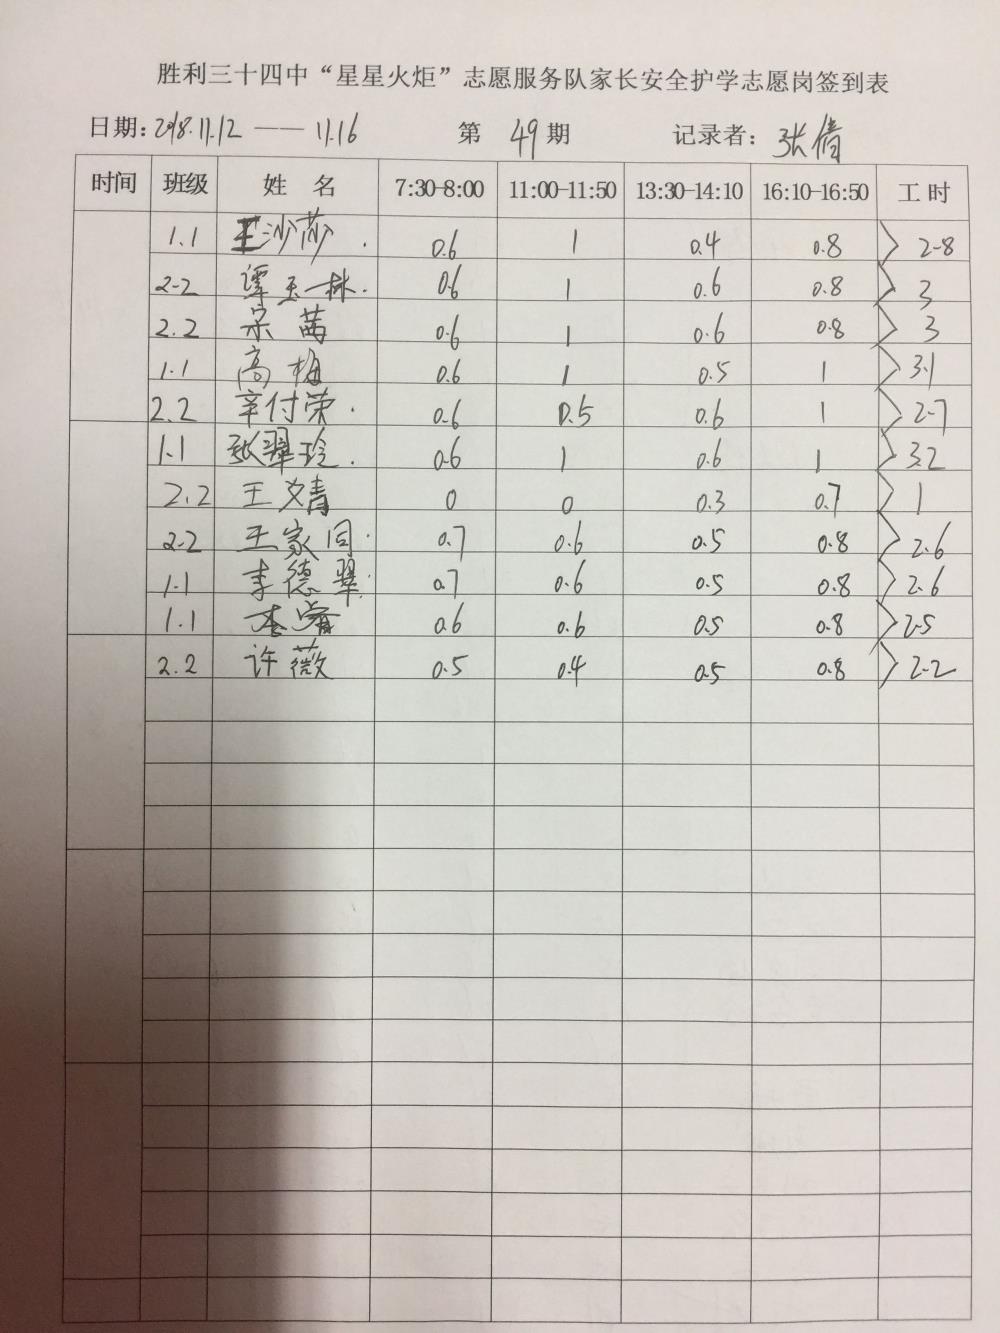 胜利三十四中“星星火炬”志愿服务队家长安全护学志愿岗签到表
日期：2018.11.12 —— 11.16 第 49 期 记录者：张倩
时间 班级 姓 名 7:30-8:00 11:00-11:50 13:30-14:10 16:10-16:50 工 时
1.1 王沙莎 0.6 1 0.4 0.8 2.8
2.2 谭玉林 0.6 1 0.6 0.8 3
2.2 宗茜 0.6 1 0.6 0.8 3
1.1 高梅 0.6 1 0.5 1 3.1
2.2 辛付荣 0.6 0.5 0.6 1 2.7
1.1 张翠玲 0.6 1 0.6 1 3.2
2.2 王文青 0 0 0.3 0.7 1
2.2 王家同 0.7 0.6 0.5 0.8 2.6
1.1 李德翠 0.7 0.6 0.5 0.8 2.6
1.1 0.6 0.6 0.5 0.8 2.5
2.2 许薇 0.5 0.4 0.5 0.8 2.2